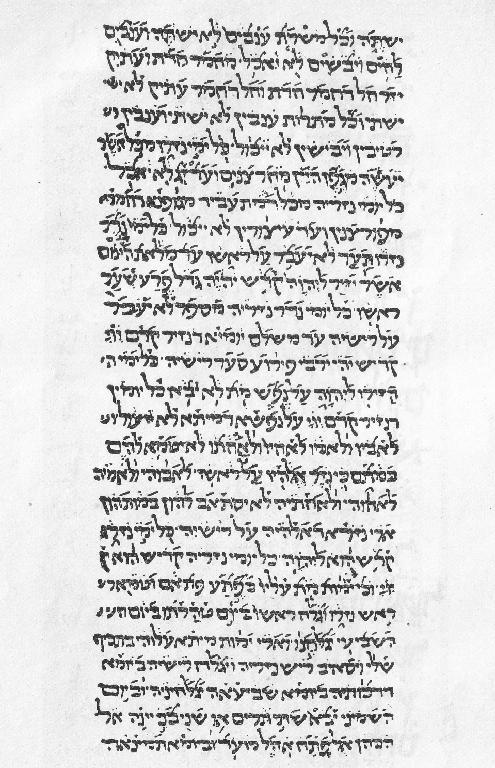 ישתה וכל משרת ענבים לא ישתה וענבים
לחים ויבשים לא יאכל מחמר חדת ועתיק
ייזר חל דחמר חדת וחל דחמר עתיק לא ישתי
ישתי וכל מתרות ענבין לא ישתי וענבין
רטיבין ויבישין לא ייכול כל ימי נזרו מכל אשר
יעשה מגפן היין מחרצנים ועד זג לא יאכל
כל יומי נזריה מכל דיתעביד מגופנא דחמרא
מפורצנין ועד עיצורין לא ייכול כל ימי נדר
נזרו תער לא יעבר על ראשו עד מלאת הימם
אשר יזיר ליהוה קדש יהיה גדל פרע שער
ראשו כל יומי נדר נזריה מספר לא יעבר
על רישיה עד משלם יומיא דנזיר קדם ייי
קדיש יהי ירבי פירוע סער רישיה כל ימי
הזירו ליהוה על נפש מת לא יבא כל יומין
דנזיר קדם ייי על נפשא דמיתא לא יעול
לאביו ולאמו לאחיו ולאחתו לא יטמא להם
במתם כי נזר אלהיו על ראשו לאבוהי ולאמיה
לאחוהי ולאחתיה לא יסתאב להון במותהון
ארי נזרא דאלהיה על רישיה כל ימי נזרו
קדש הוא ליהוה כל יומי נזריה קדיש הוא ק
וכי ימות מת עליו בפתע פתאם וטמא
ראש נזרו וגלח ראשו ביום טהרתו ביום
השביעי יגלחנו וארי ימות מיתא עלוהי בתכיף
שלו ויסאב ריש נזריה ויגלח רישיה ביומא
דדכותיה ביומא שביעאה יגלחיניה וביום
השמיני יבא שתי תרים או שני בני יונה אל
הכהן אל פתח אהל מועד וביומא תמינאה